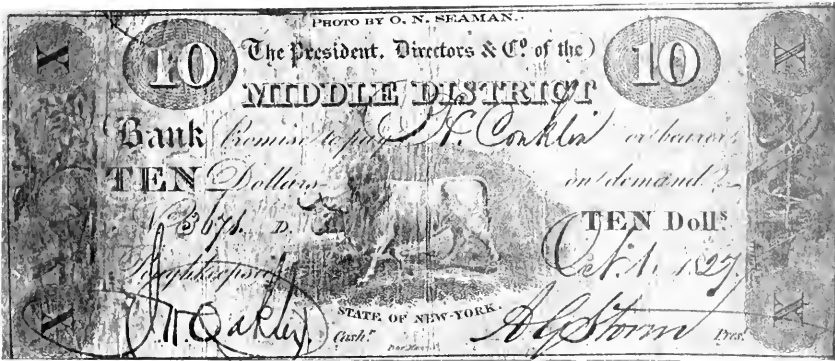 PHOTO BY O. N. SEAMAN.
X 10 The President, Directors & Co. of the) 10 X
MIDDLE DISTRICT
Bank Promise to pay H. Conklin or bearer
TEN Dollars on demand
No 3671. D. TEN Doll.s
Poughkeepsie Oct. 1. 1827.
STATE OF NEW-YORK.
X Oakley, Cash.r A G Storm Pres.t X